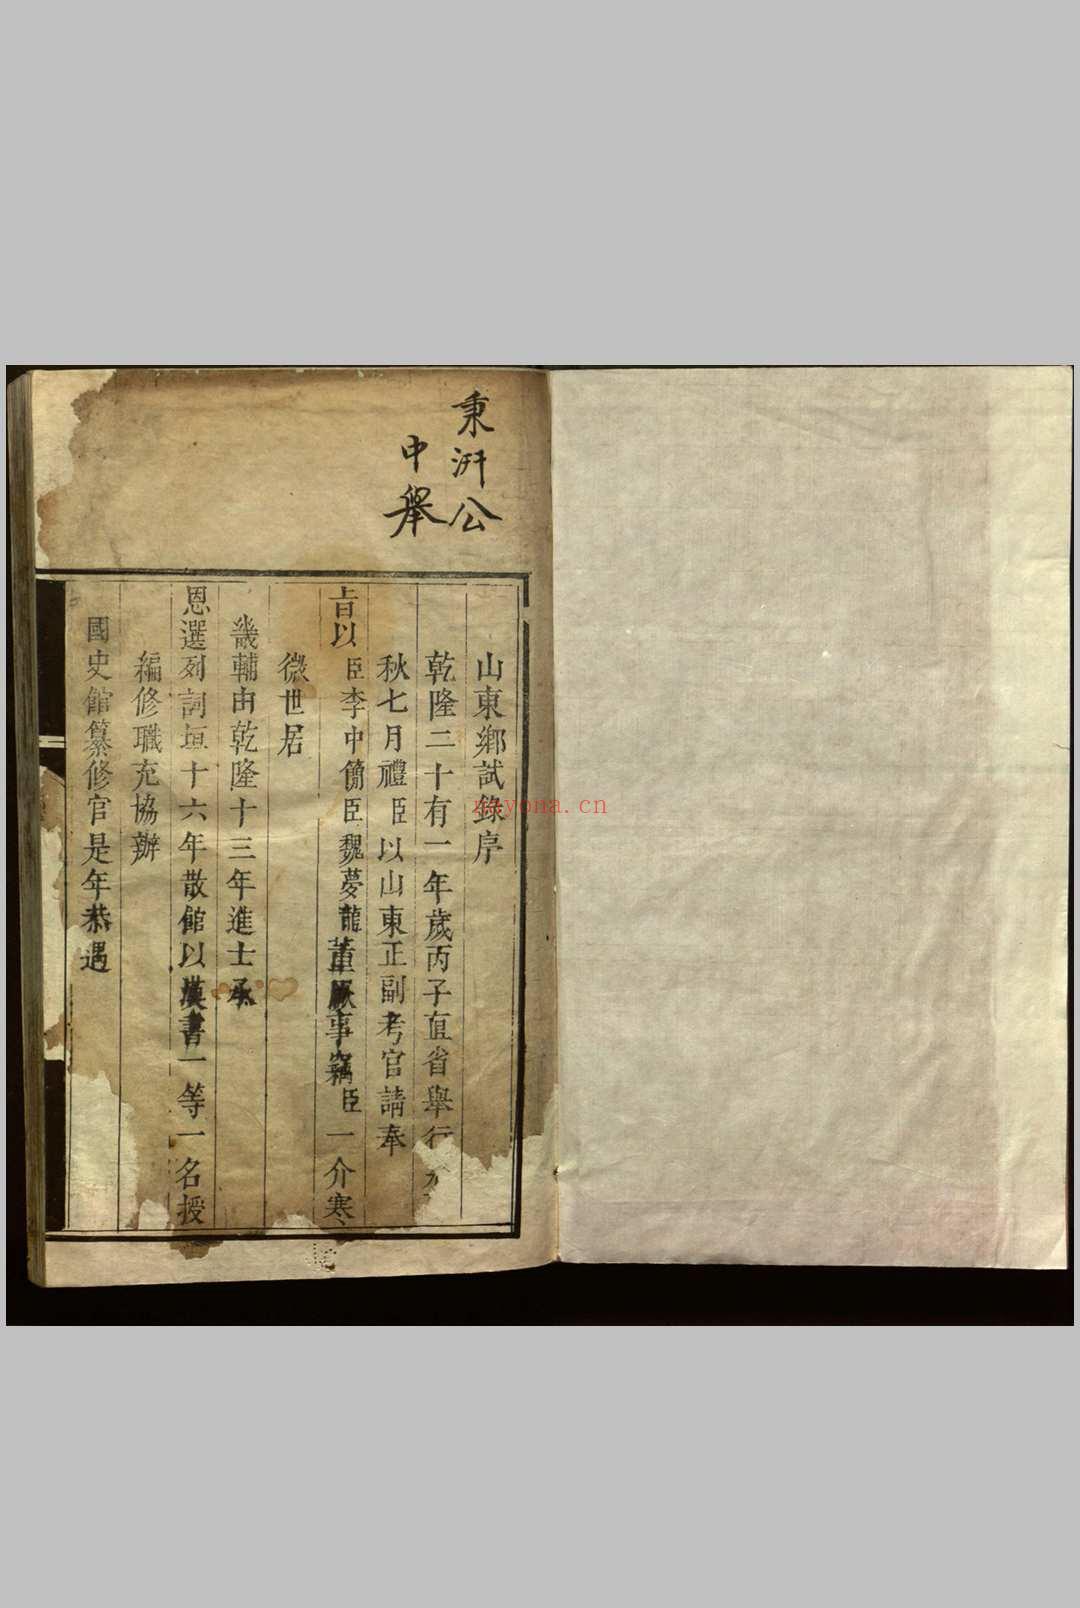 秉汧公
中舉
山東鄉試錄序
乾隆二十有一年歲丙子直省舉行
秋七月禮臣以山東正副考官請奉
旨以臣李中簡臣魏夢龍董厥事竊臣一介寒
微世居
畿輔由乾隆十三年進士承
恩選列詞垣十六年散館以漢書一等一名授
編修職充協辦
國史館纂修官是年恭遇
nayona.cn